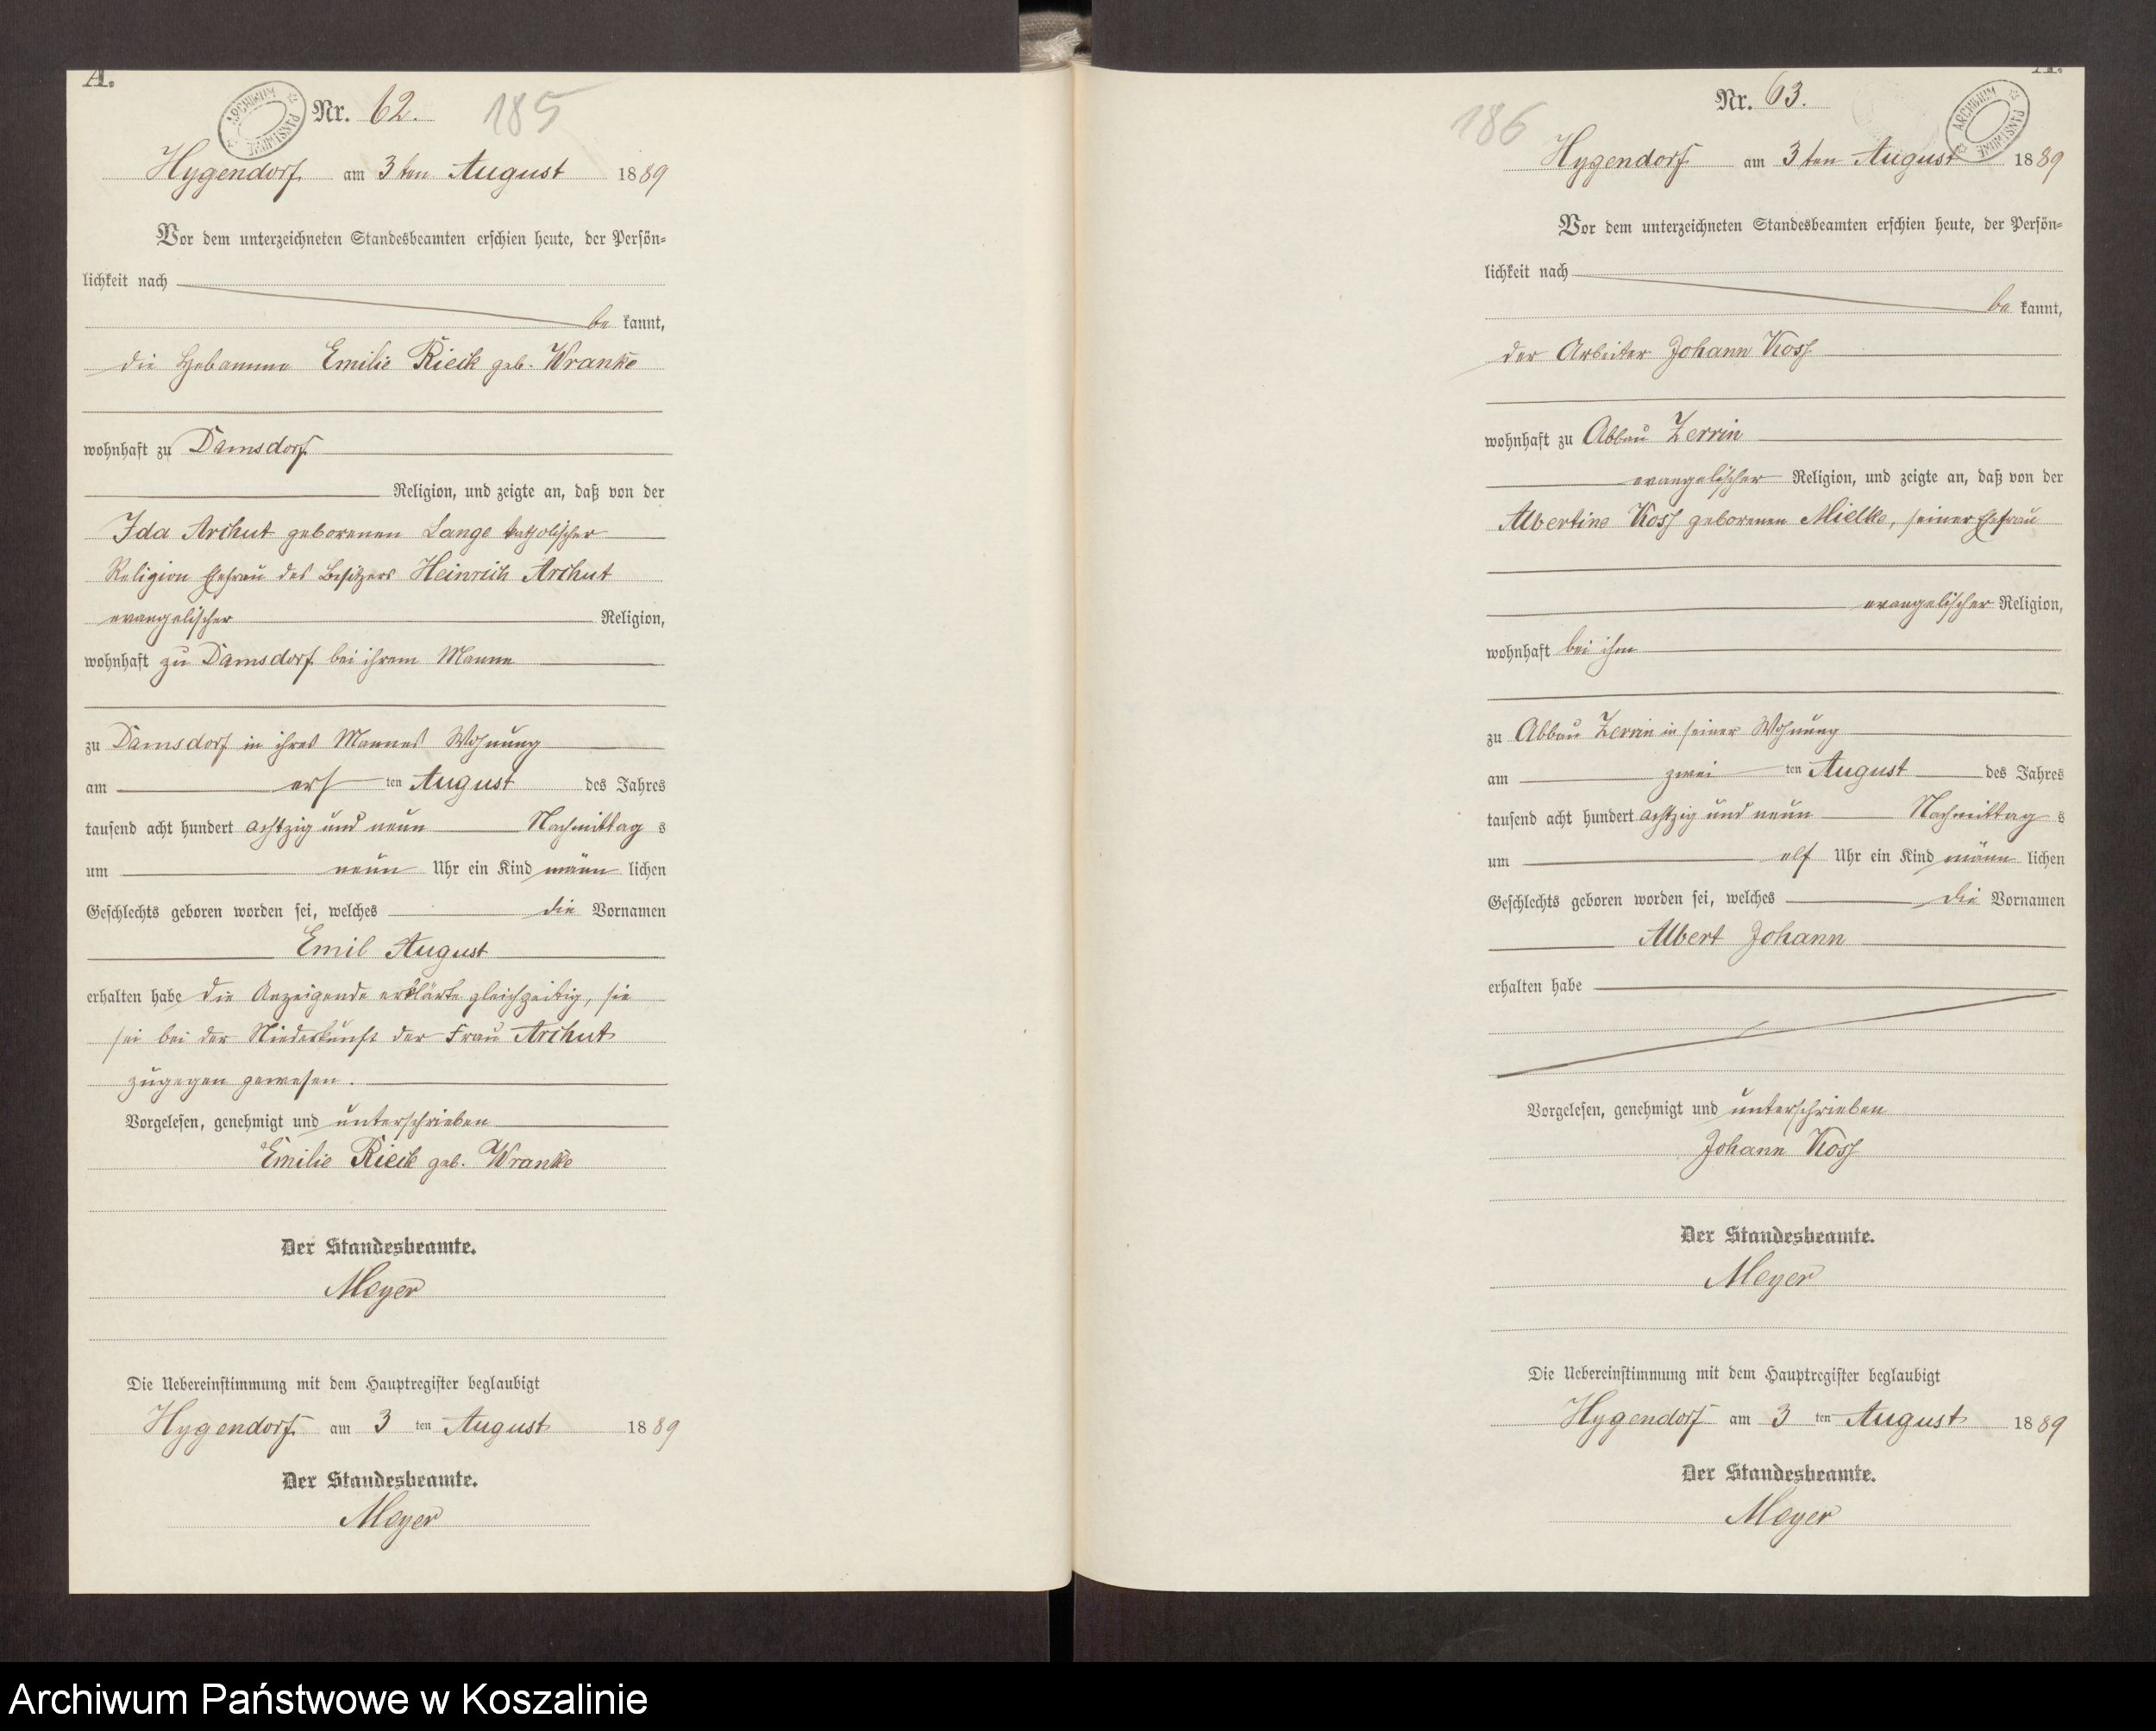 A.
ARCHIWUM PAŃSTWOWE
Nr. 62.
185
Hygendorf am 3ten August 1889
Vor dem unterzeichneten Standesbeamten erschien heute, der Persön=
lichkeit nach
be kannt,
die Hebamme Emilie Rieck geb. Wranke
wohnhaft zu Damsdorf
Religion, und zeigte an, daß von der
Ida Archut geborenen Lange katholischer
Religion Ehefrau des Besitzers Heinrich Archut
evangelischer Religion,
wohnhaft zu Damsdorf bei ihrem Manne
zu Damsdorf in ihres Mannes Wohnung
am erst ten August des Jahres
tausend acht hundert achtzig und neun Nachmittag s
um neun Uhr ein Kind männ lichen
Geschlechts geboren worden sei, welches die Vornamen
Emil August
erhalten habe die Anzeigende erklärte gleichzeitig, sie
sei bei der Niederkunft der Frau Archut
zugegen gewesen.
Vorgelesen, genehmigt und unterschrieben
Emilie Rieck geb. Wranke
Der Standesbeamte.
Meyer
Die Uebereinstimmung mit dem Hauptregister beglaubigt
Hygendorf am 3 ten August 1889
Der Standesbeamte.
Meyer
A.
186
Nr. 63.
ARCHIWUM PAŃSTWOWE
Hygendorf am 3ten August 1889
Vor dem unterzeichneten Standesbeamten erschien heute, der Persön=
lichkeit nach
be kannt,
der Arbeiter Johann Koss
wohnhaft zu Abbau Zerrin
evangelischer Religion, und zeigte an, daß von der
Albertine Koss geborenen Mielke, seiner Ehefrau
evangelischer Religion,
wohnhaft bei ihm
zu Abbau Zerrin in seiner Wohnung
am zwei ten August des Jahres
tausend acht hundert achtzig und neun Nachmittag s
um elf Uhr ein Kind männ lichen
Geschlechts geboren worden sei, welches die Vornamen
Albert Johann
erhalten habe
Vorgelesen, genehmigt und unterschrieben
Johann Koss
Der Standesbeamte.
Meyer
Die Uebereinstimmung mit dem Hauptregister beglaubigt
Hygendorf am 3 ten August 1889
Der Standesbeamte.
Meyer
Archiwum Państwowe w Koszalinie